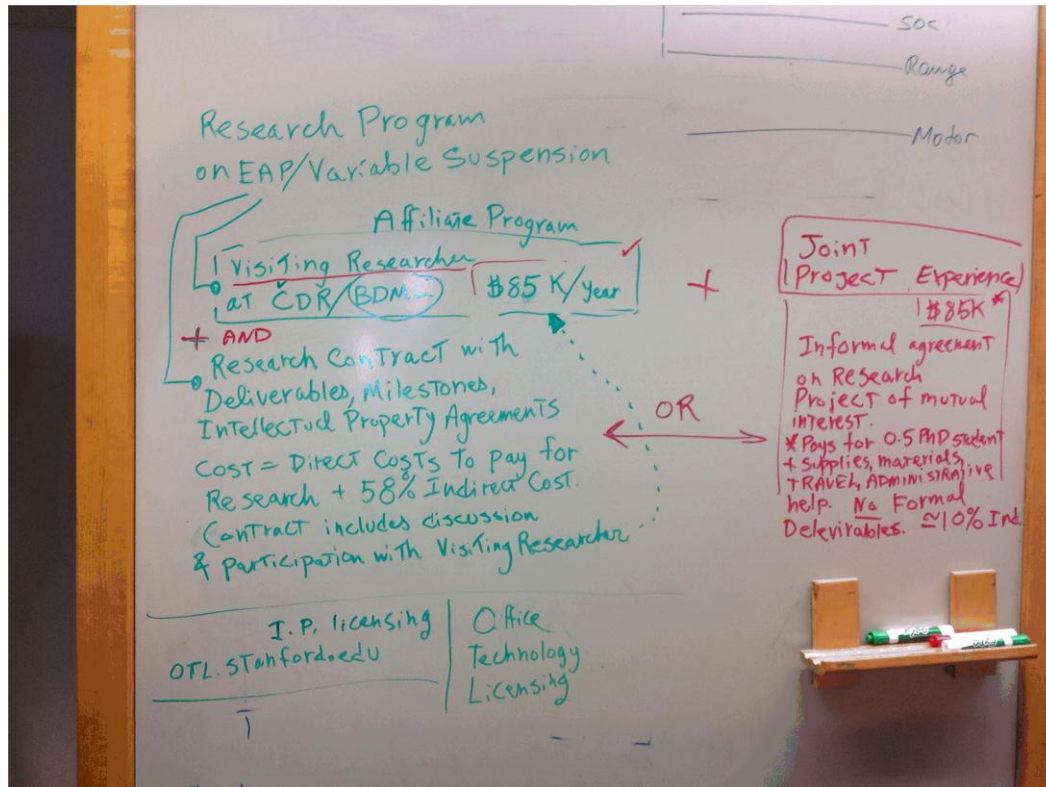 SOC
Range
Motor
Research Program
on EAP/Variable Suspension
Affiliate Program
Visiting Researcher
at CDR/BDML
$85 K/year
+
+ AND
Research Contract with
Deliverables, Milestones,
Intellectual Property Agreements
Cost = Direct Costs to pay for
Research + 58% Indirect Cost.
Contract includes discussion
& participation with Visiting Researcher
OR
Joint
Project Experience
$85K *
Informal agreement
on Research
Project of mutual
interest.
* Pays for 0.5 PhD student
+ supplies, materials,
TRAVEL, ADMINISTRATIVE
help. No Formal
Delevirables. ≃10% Ind.
I.P. licensing
OTL.stanford.edu
Office
Technology
Licensing